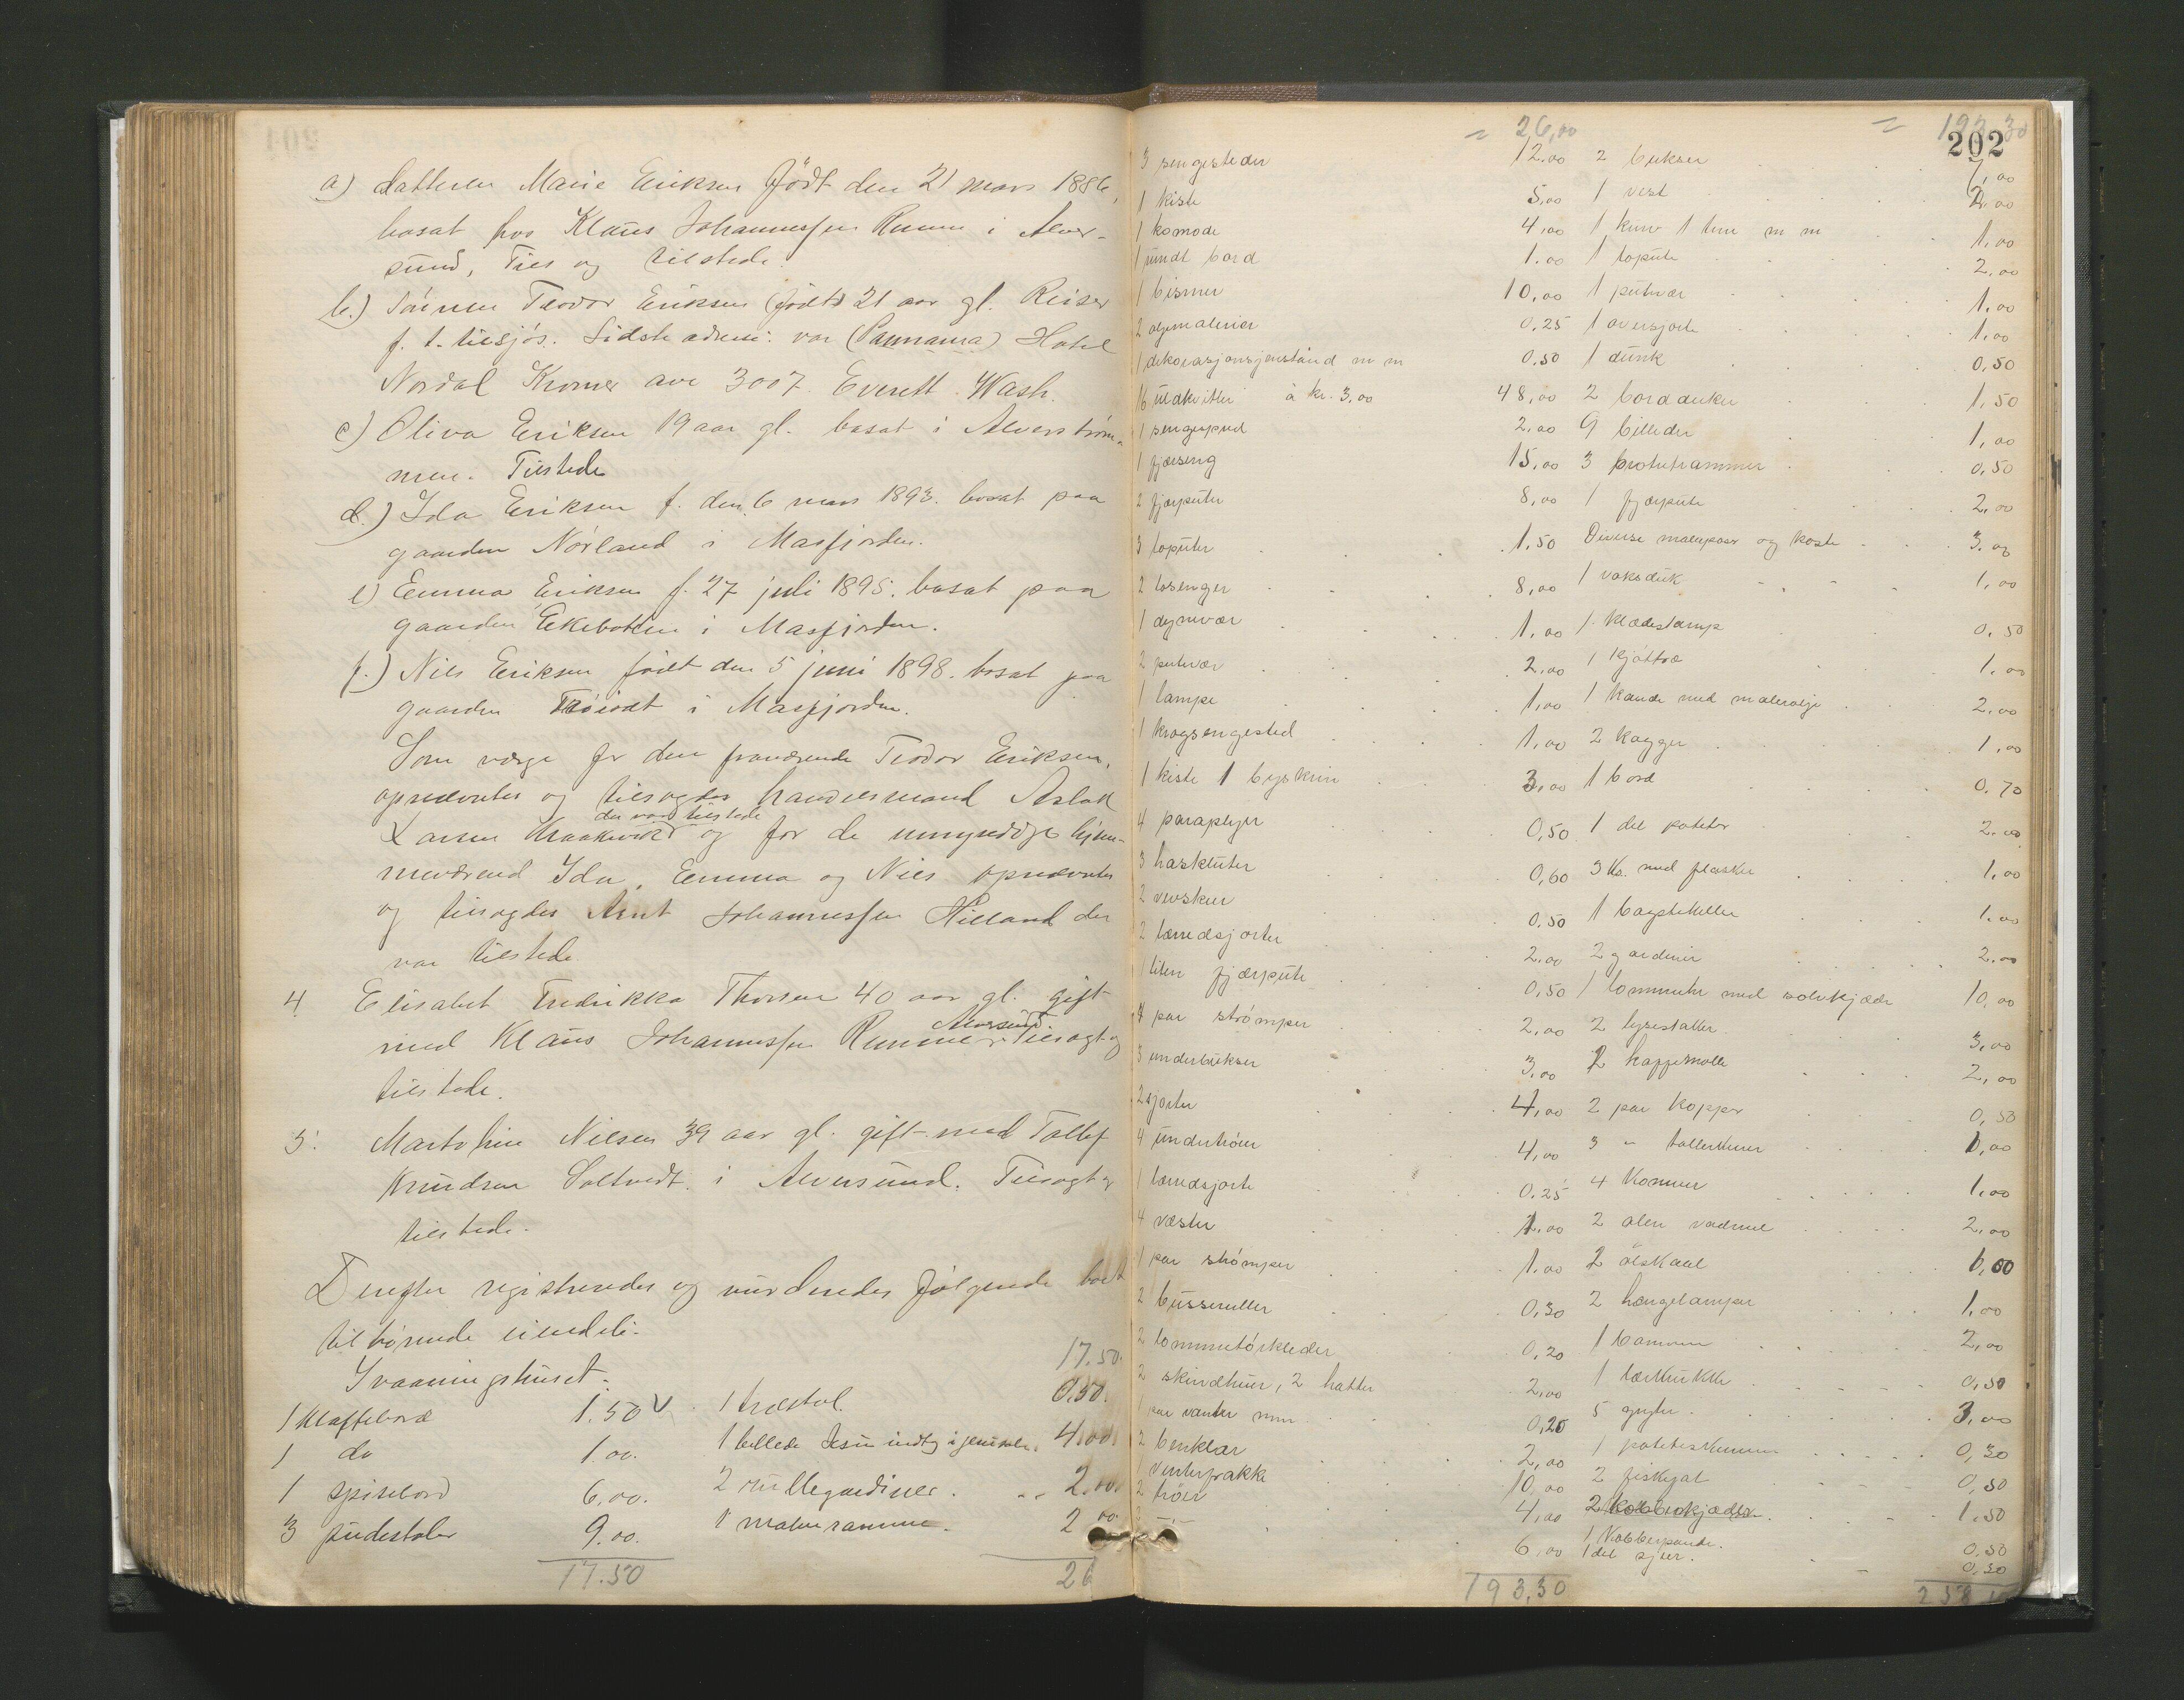 a) datteren Marie Eriksen født den 21 mars 1886,
bosat hos Klaus Johannessen Rumme i Alver-
sund, Tils og tilstede.
b.) Sønnen Teodor Eriksen (født) 21 aar gl. Reiser
f. t. tilsjøs. Sidste adresse: var (Pannama) Hotel
Nordal Kromer ave 3007. Everett. Wash.
c) Oliva Eriksen 19 aar gl. bosat i Alverstrøm-
men. Tilstede
d.) Ida Eriksen f. den 6 mars 1893. bosat paa
gaarden Nørland i Masfjorden.
e) Emma Eriksen f. 27 juli 1895. bosat paa
gaarden Ekebotten i Masfjorden.
f.) Nils Eriksen født den 5 juni 1898. bosat paa
gaarden i Masfjorden.
Som verge for den fraværende Teodor Eriksen,
opnævntes og tilsagdes handelsmand Aslak
der var tilstede
Larsen og for de umyndige hjem-
meværend Ida, Emma og Nils opnævntes
og tilsagdes Arnt Johannessen Hilland der
var tilstede
4 Elisabet Fredrikka Thorsen 40 aar gl. gift
Alversund
med Klaus Johannessen Rumme Tilsagt og
tilstede.
5. Nilsen 39 aar gl. gift med Tollef
Knudsen Soltvedt i Alversund. Tilsagt og
tilstede.
Derefter registreredes og vurderedes følgende boet
tilhørende eiendele.
I vaaningshuset. 17.50.
1 klaffebord 1.50 1 træstol. 0,50.
1 do 1.00. 1 billede Jesu indtog i jerusalem. 4.00
1 spisebord 6.00. 2 rullegardiner. 2.00
3 pudestoler 9.00. 1 ramme. 2.00
17.50 26
202
= 26,00
3 sengesteder 12.00
1 kiste 5,00
1 komode 4,00
1 rundt bord 1.00
1 bismer 10,00
2 oljemalerier 0,25
1 dekorasjonsgjenstand m m 0.50
16 uldkvitler à kr. 3,00 48,00
1 sengspred 2,00
1 fjærseng 15,00
2 fjærputer 8,00
3 loputer 1,50
2 losenger 8,00
1 dynevær 1,00
2 putevær 2,00
1 lampe 1,00
1 krogsengested 1,00
1 kiste 1 byskrin 3,00
4 paraplyer 0,50
3 haskluter 0,60
2 0.50
2 lærredsjorter 2.00
1 liten fjærpute 0,50
4 par strømper 2,00
3 underbukser 3,00
2 sjorter 4,00
4 undertrøier 4,00
1 lærredsjorte 0,25
4 vester 1.00
1 par strømper 1.00
2 busseruller 0,30
2 lommetørklæder 0,20
2 skindhuer, 2 hatter 2,00
1 par vanter mm 0,20
2 benklær 2,00
1 vinterfrakke 10,00
2 trøier 4,00
3 —"— 6,00
193,30
= 193,30
2 bukser 7,00
1 vest 2,00
1 kurv 1 tine m m 1,00
1 lopute 2,00
1 putevær 1,00
1 oversjorte 1,00
1 dunk 0,50
2 bordduker 1,50
9 billeder 1,00
3 fotorammer 0,50
1 fjærpute 2,00
Diverse malerposer og koste 3.00
1 voksduk 1,00
1 klædestamp 0,50
1 kjøttræ 1.00
1 kande med maleroljе 2,00
2 kagger 1,00
1 bord 0.70
1 del poteter 2.00
3 Ks. med flasker 1,00
1 1.00
2 gardiner 2.00
1 lommeur med sølvkjæde 10,00
2 lysestaker 3,00
2 kaffemølle 2,00
2 par kopper 0,50
3 " tallerkener 1,00
4 Kommer 1,00
2 alen vadmel 2,00
2 ølskaal 1,00
2 hængelamper 1,00
1 2,00
1 lærkrukke 0,50
5 gryter. 3,00
1 0,30
2 fiskefat 0,50
2 kobberkjedler 1.50
1 Kobberpande. 0,50
1 del sjær. 0,50
258